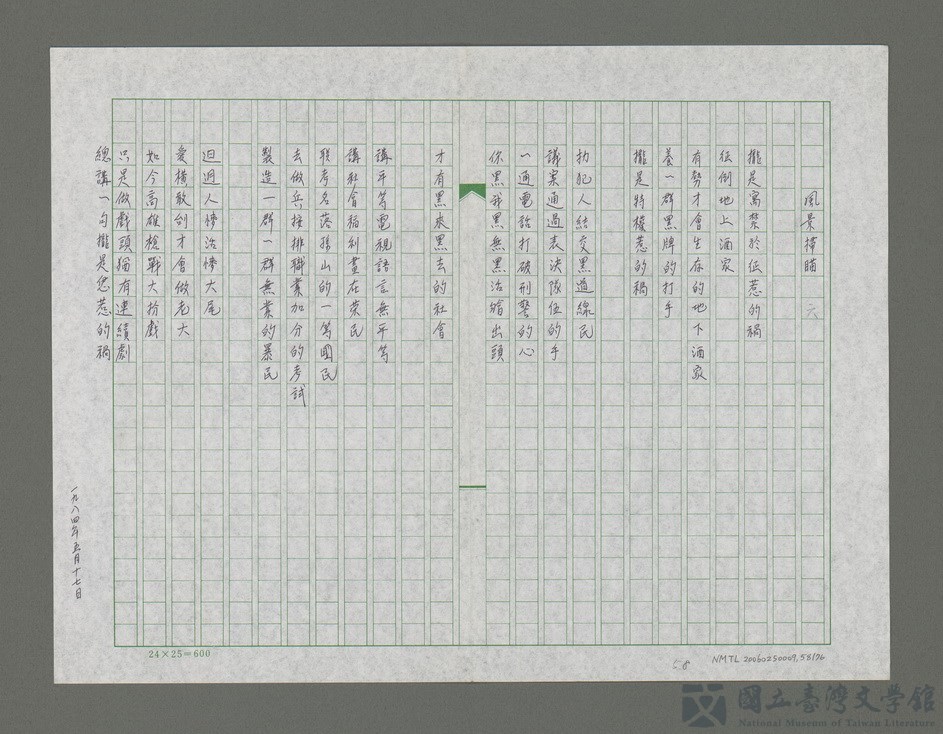 風景掃瞄 六
攏是寓禁於征惹的禍
征倒地上酒家
有勢才會生存的地下酒家
養一群黑牌的打手
攏是特權惹的禍
抐犯人結交黑道線民
議案通過表決隊伍的手
一通電話打破刑警的心
你黑我黑無黑沒出頭
才有黑來黑去的社會
講平等電視語言無平等
講社會福利盡在榮民
聯考名落孫山的一等國民
去做兵接排職業加分的考試
製造一群一群無業的暴民
迌迌人慘治慘大尾
愛橫敢刣才會做老大
如今高雄槍戰大扮戲
只是做戲頭猶有連續劇
總講一句攏是您惹的禍
一九八四年五月十七日
24×25=600
58
NMTL 20060250009.58/76
國立臺灣文學館
National Museum of Taiwan Literature